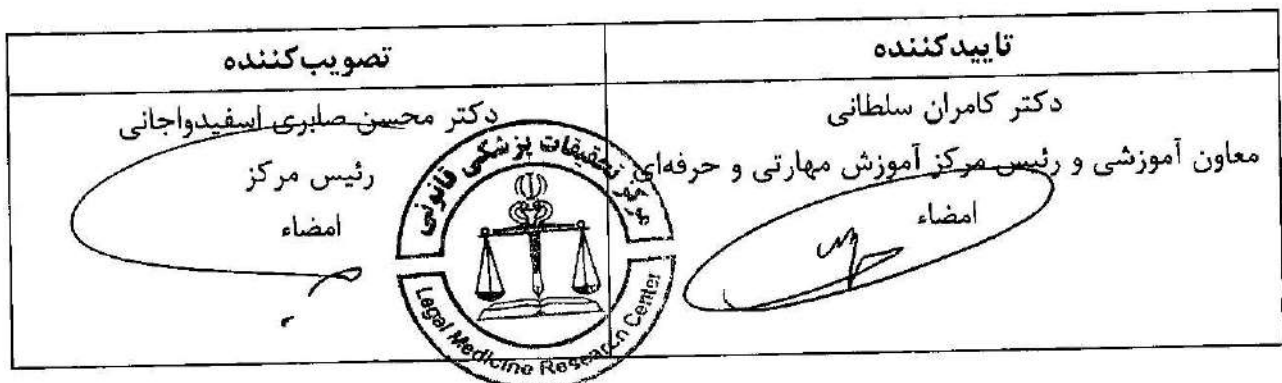 تاییدکننده
دکتر کامران سلطانی
معاون آموزشی و رئیس مرکز آموزش مهارتی و حرفه‌ای
امضاء
تصویب‌کننده
دکتر محسن صابری اسفیدواجانی
رئیس مرکز
امضاء
مرکز تحقیقات پزشکی قانونی
Legal Medicine Research Center